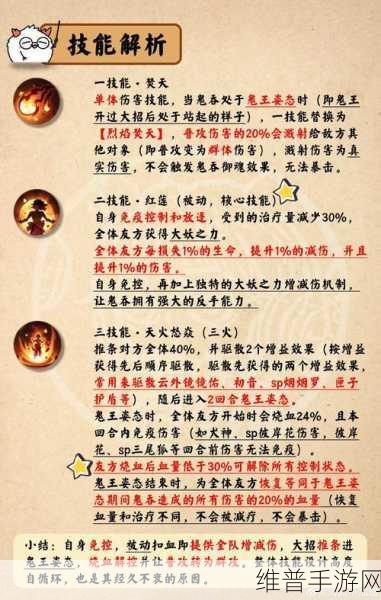 技能解析
一技能·焚天
单体伤害技能，当鬼吞处于鬼王姿态时（即鬼王
开过大招后处于站起的样子），一技能替换为
【烈焰焚天】，普攻伤害的20%会溅射给敌方其
他对象（即普攻变为群体伤害），溅射伤害为真
实伤害，不会触发鬼吞御魂效果，无法暴击。
二技能·红莲（被动，核心技能）
自身免疫控制和放逐，受到的治疗量减少30%，
全体友方获得大妖之力。
全体友方每损失1%的生命，提升1%的减伤，并且
提升1%的伤害。
自身免控，再加上独特的大妖之力增减伤机制，
让鬼吞拥有强大的反手能力。
三技能·天火怒焱（三火）
推条对方全体40%，并驱散2个增益效果（按增益
获得先后顺序驱散，驱散先获得的两个增益效果，
常用来驱散云外镜镜佑、初音、sp烟烟罗、匣子
护盾等），随后进入2回合鬼王姿态。
鬼王姿态时，全体友方开始时会烧血24%，且本
回合内免疫伤害（如犬神、sp彼岸花伤害，彼岸
花、sp三尾狐等四合前伤害无法免疫）。
友方烧血后血量低于30%可解除所有控制状态。
鬼王姿态结束时，为全体友方恢复等同于鬼王姿
态期间鬼吞造成的所有伤害的20%的血量（恢复
血量和治疗不同，不会被减疗，不会暴击）。
小结：自身免控，被动扣血即提供全队增减伤，大招推条进
鬼王姿态，烧血解控并让普攻转为群攻。整体技能设计高度
自循环，也是其经久不衰的原因。
维普手游网